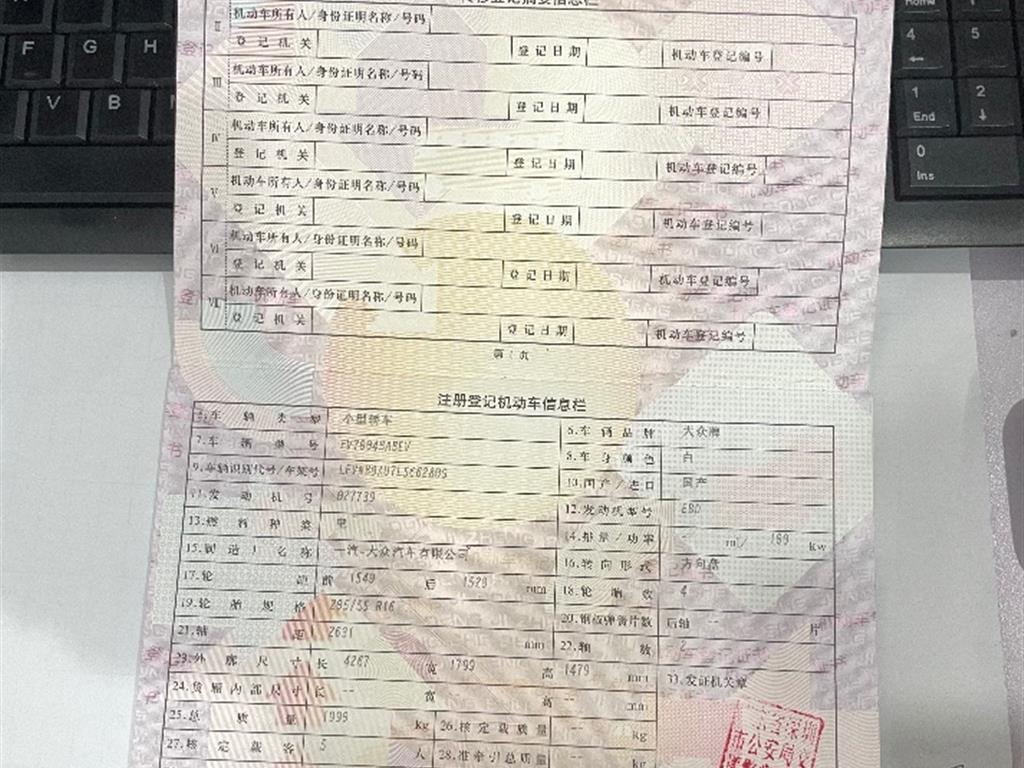 转移登记摘要信息栏
II 机动车所有人/身份证明名称/号码
登记机关 登记日期 机动车登记编号
III 机动车所有人/身份证明名称/号码
登记机关 登记日期 机动车登记编号
IV 机动车所有人/身份证明名称/号码
登记机关 登记日期 机动车登记编号
V 机动车所有人/身份证明名称/号码
登记机关 登记日期 机动车登记编号
VI 机动车所有人/身份证明名称/号码
登记机关 登记日期 机动车登记编号
VII 机动车所有人/身份证明名称/号码
登记机关 登记日期 机动车登记编号
第1页
注册登记机动车信息栏
5.车辆类型 小型轿车 6.车辆品牌 大众牌
7.车辆型号 8.车身颜色 白
9.车辆识别代号/车架号 10.国产/进口 国产
11.发动机号 027739 12.发动机型号 EBD
13.燃料种类 14.排量/功率 -- ml/ kw
15.制造厂名称 一汽-大众汽车有限公司 16.转向形式 方向盘
17.轮距 前 1549 后 1520 mm 18.轮胎数 4
19.轮胎规格 205/55 R16 20.钢板弹簧片数 后轴 -- 片
21.轴距 2631 mm 22.轴数 2
23.外廓尺寸 长 4267 宽 1799 高 1479 mm 33.发证机关章
24.货厢内部尺寸 长 -- 宽 -- 高 -- mm
25.总质量 1995 kg 26.核定载质量 -- kg
27.核定载客 5 人 28.准牵引总质量 --
深圳
市公安局交
F G H
V B
4 5
1 End 2
0 Ins
Home